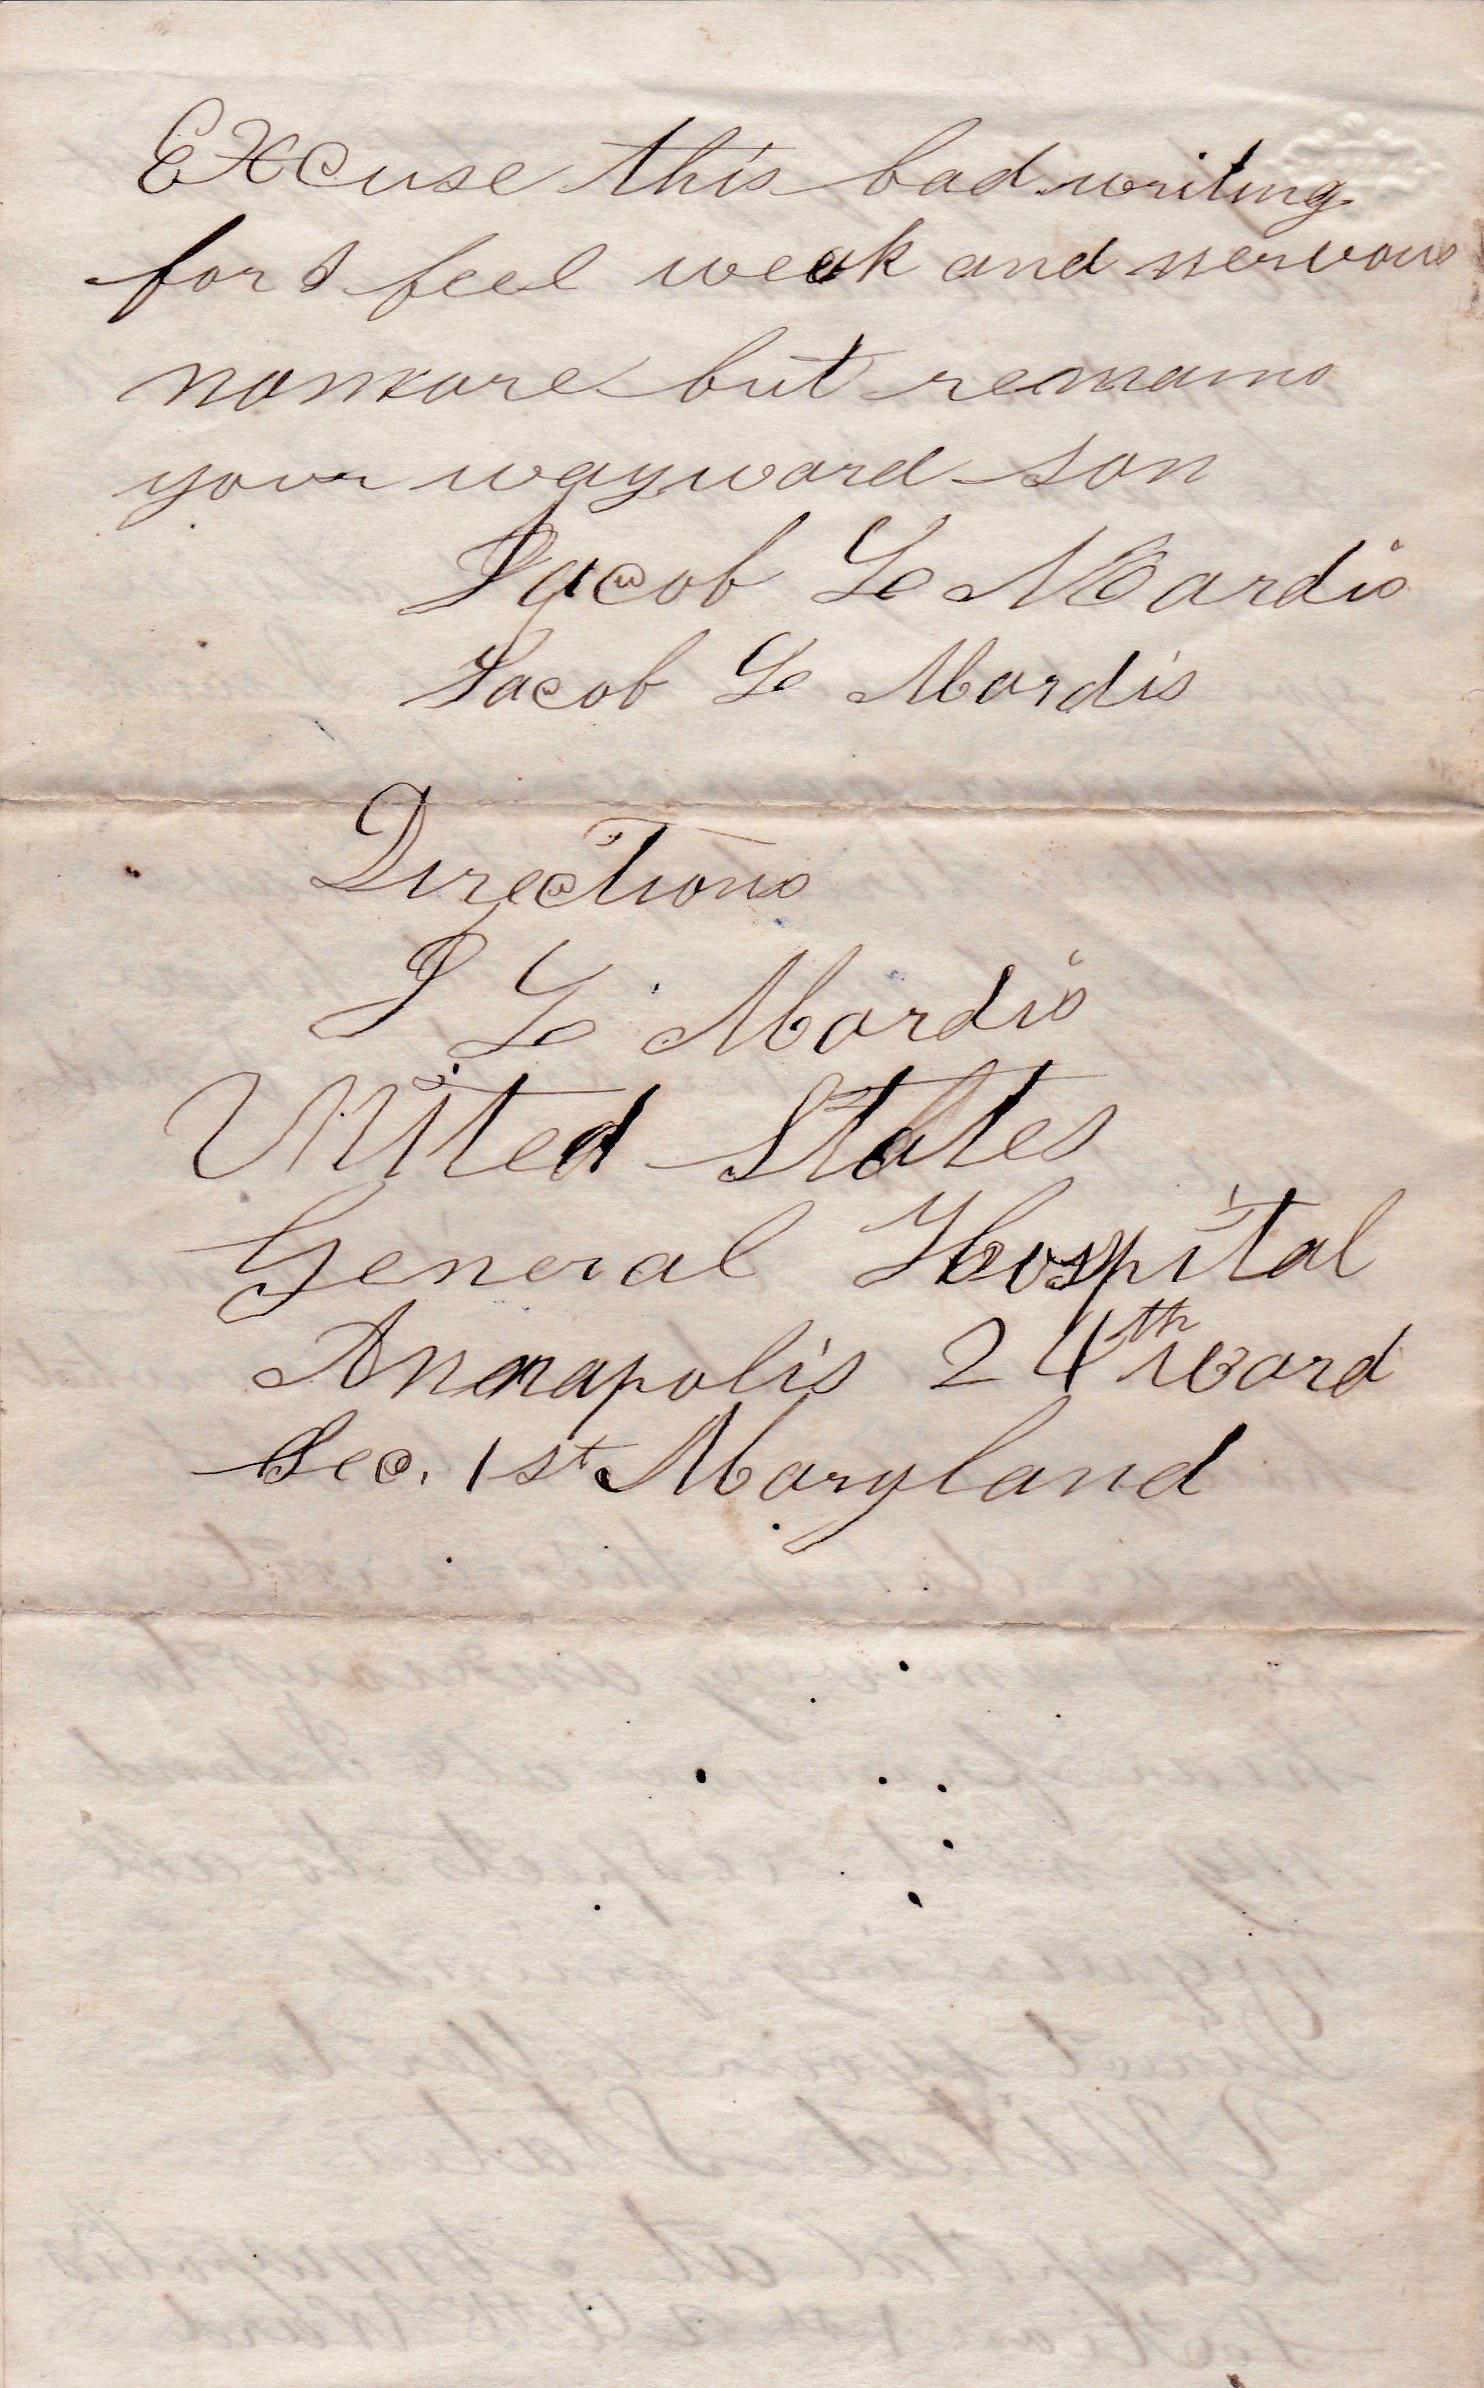 Excuse this bad writing
for I feel weak and nervous
nomore but remains
your wayward son
Jacob L Mardis
Jacob L Mardis
Directions
J L Mardis
United States
General Hospital
Annapolis 24th ward
Sec. 1st Maryland